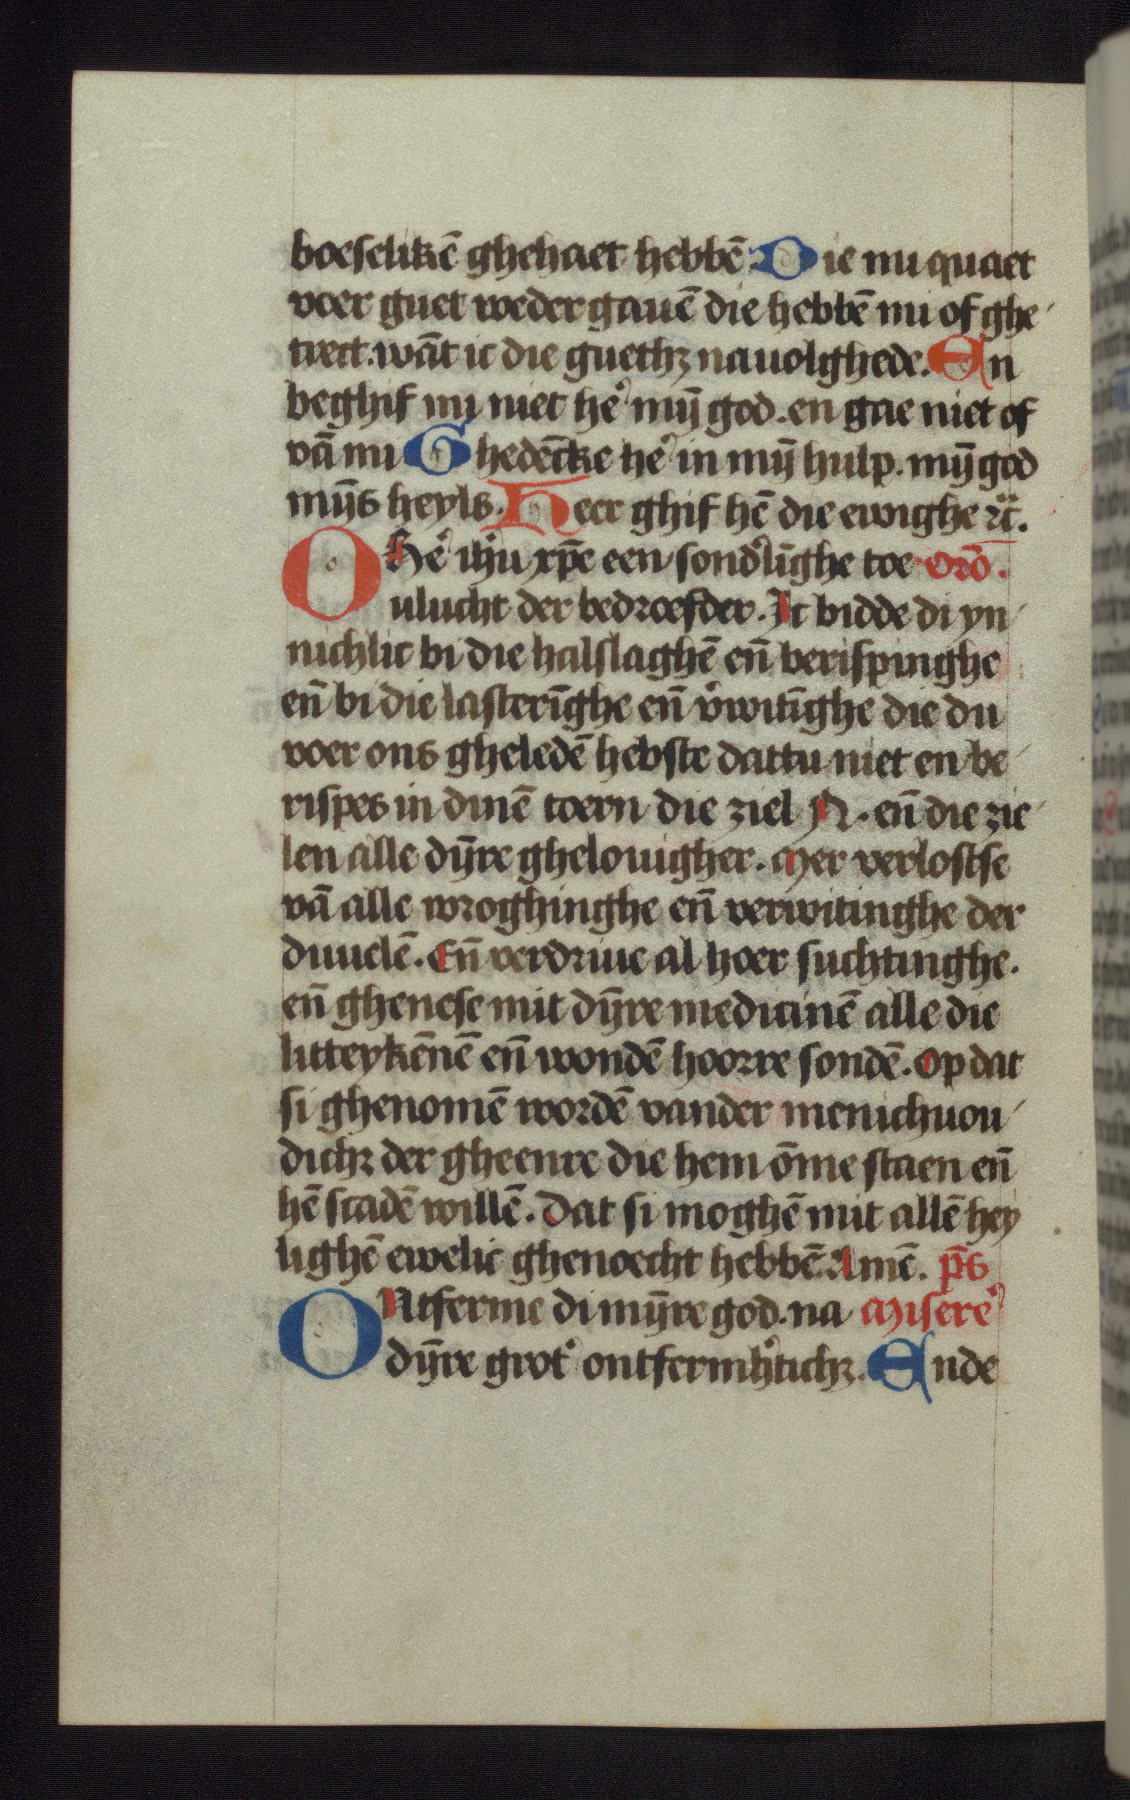 boeselikē ghehaet hebbē. Die mi quaet
voer guet weder gauē die hebbē mi of ghe
trect. wāt ic die guethꝫ nauolghede. En
beghif mi niet he᷑ mȳ god. en gae niet of
vā mi Ghedēcke he᷑ in mȳ hulp. mȳ god
mȳs heyls. Heer ghif hē die ewighe ⁊c̄.
O He᷑ ihū xp̄e een sond᷑līghe toe orō.
ulucht der bedroefder. Ic bidde di yn
nichlic bi die halslaghē en̄ berispinghe
en̄ bi die lasterīghe en̄ v᷑witīghe die du
voer ons gheledē hebste dattu niet en be
rispes in dinē toern die ziel N. en̄ die zie
len alle dȳre ghelouigher. Mer verlostse
vā alle wroghinghe en̄ verwitinghe der
duuelē. En̄ verdriue al hoer suchtinghe.
en̄ ghenese mit dȳre medicinē alle die
litteykēnē en̄ wondē hoorre sondē. Op dat
si ghenomē wordē vander menichuou
dichꝫ der gheenre die hem ōme staen en̄
hē scadē willē. Dat si moghē mit allē hey
lighē ewelic ghenoecht hebbē. Amē. ps̄
ONtferme di mȳre god. na Misere᷑
dȳre grot᷑ ontfermh᷑tichꝫ. Ende